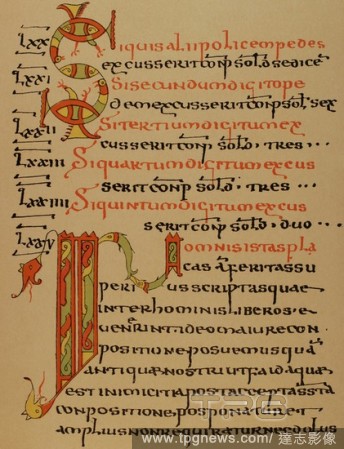 lxx Siquis aliipollicem pedes
excusserit conp sold sedice
lxxi Si secundum digito pe
dem excusserit conp sol sex
lxxii Si tertium digitum ex
cusserit conp sold · tres ···
lxxiii Si quartum digitum excus
serit conp sold · tres ···
lxxiiii Si quintum digitum excus
serit conp sold · duo ···
lxxv In omnis istas pla
cas
peri us scriptas quae
inter hominis liberos e
uenerint ideo maiure con
positione posuemus qua
antiquae nostri ut
est inimicitia post accepta ssta
conpositione, pos
amplius non requiratur nec dolus
TPG
www.tpgnews.com / 達志影像